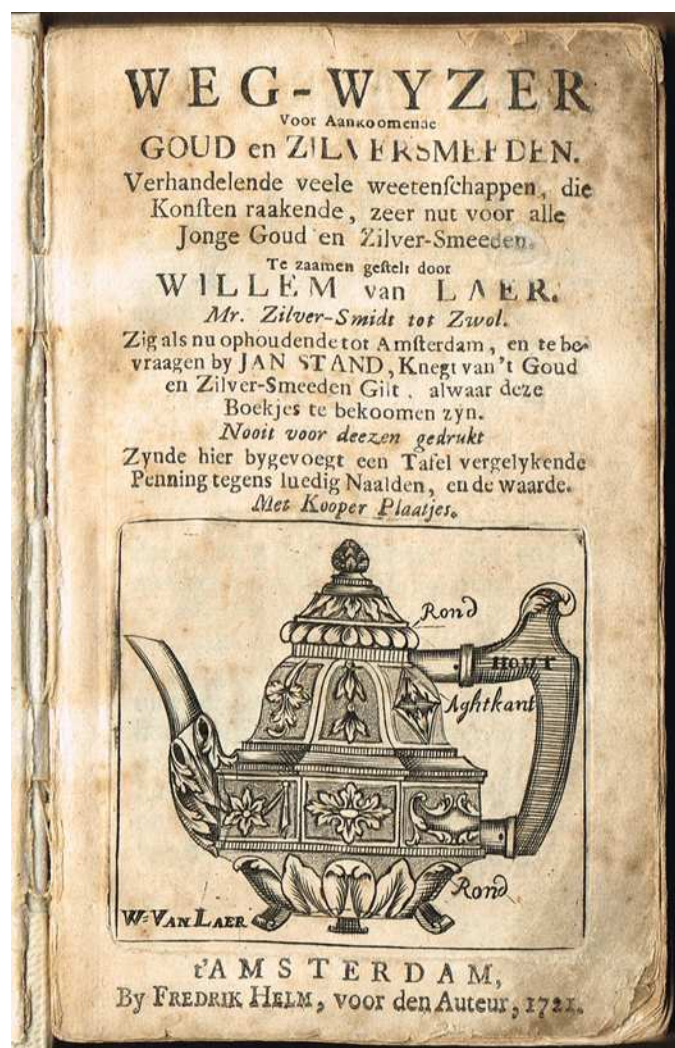 WEG-WYZER
Voor Aankoomende
GOUD en ZILVERSMEEDEN.
Verhandelende veele weetenſchappen, die
Konſten raakende, zeer nut voor alle
Jonge Goud en Zilver-Smeeden.
Te zaamen geſtelt door
WILLEM van LAER.
Mr. Zilver-Smidt tot Zwol.
Zig als nu ophoudende tot Amſterdam, en te be-
vraagen by JAN STAND, Knegt van't Goud
en Zilver-Smeeden Gilt, alwaar deze
Boekjes te bekoomen zyn.
Nooit voor deezen gedrukt
Zynde hier bygevoegt een Tafel vergelykende
Penning tegens luedig Naalden, en de waarde.
Met Kooper Plaatjes.
Rond
HOUT
Aghtkant
Rond
W= VAN LAER
t'AMSTERDAM,
By FREDRIK HELM, voor den Auteur, 1721.